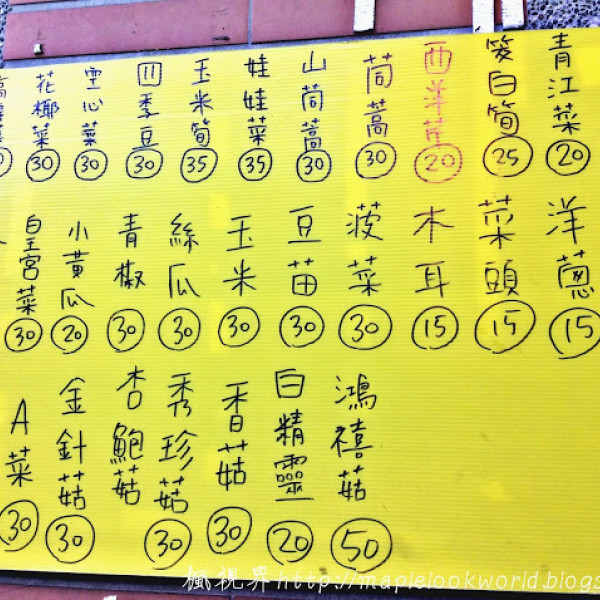 青江菜 20
筊白筍 25
西洋芹 20
茼蒿 30
山茼蒿 30
娃娃菜 35
玉米筍 35
四季豆 30
空心菜 30
花椰菜 30
洋蔥 15
菜頭 15
木耳 15
菠菜 30
豆苗 30
玉米 30
絲瓜 30
青椒 30
小黃瓜 20
皇宮菜 30
鴻禧菇 50
白精靈 20
香菇 30
秀珍菇 30
杏鮑菇
金針菇 30
A菜 30
楓視界http://maplelookworld.blogs